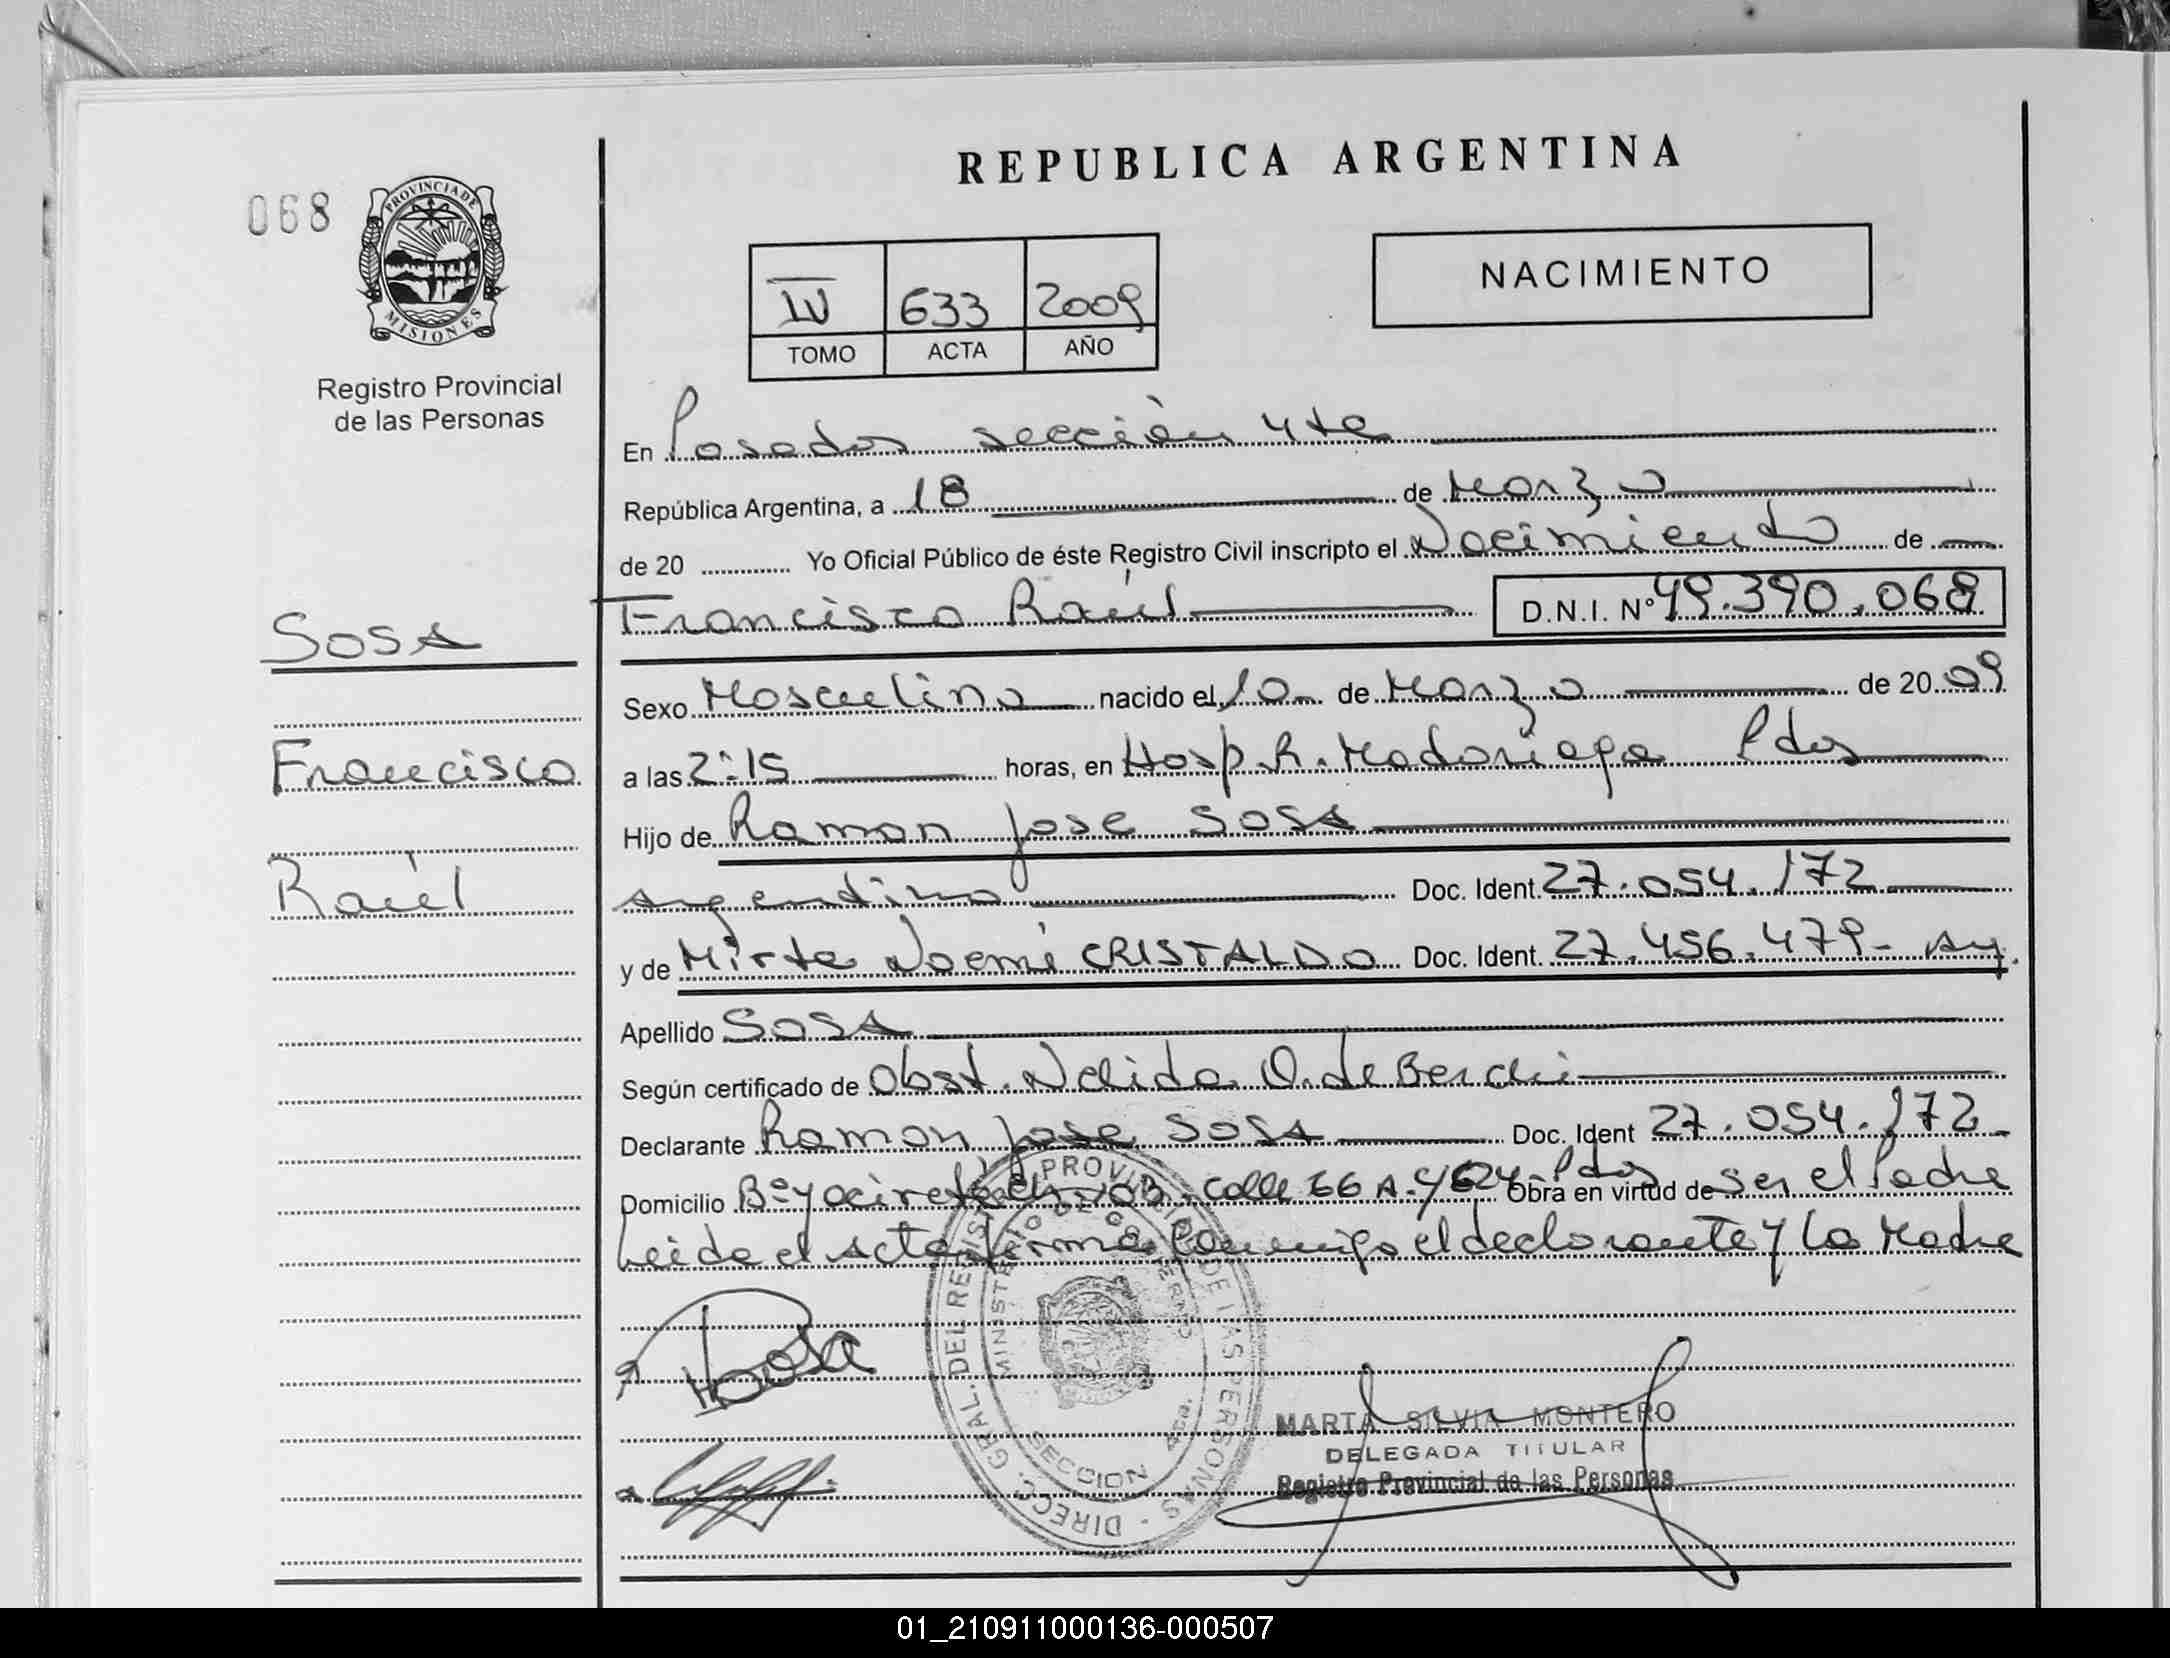 REPUBLICA ARGENTINA
068
PROVINCIA DE
MISIONES
Registro Provincial
de las Personas
NACIMIENTO
IV 633 2009
TOMO ACTA AÑO
En Posadas sección 4ta
República Argentina, a 18 de Marzo
de 20 Yo Oficial Público de éste Registro Civil inscripto el Nacimiento de
Francisco Raúl D.N.I. Nº 49.390.068
SOSA
Francisco
Raúl
Sexo Masculino nacido el 10 de Marzo de 2009
a las 2:15 horas, en Hosp. R. Madariaga Pdas
Hijo de Ramon Jose SOSA
Argentino Doc. Ident. 27.054.172
y de Mirta Noemí CRISTALDO Doc. Ident. 27.456.479 - Ay.
Apellido SOSA
Según certificado de Obst. Nelida O. de
Declarante Ramon Jose SOSA Doc. Ident 27.054.172
Domicilio Bº Yacireta calle 66 A. Pdas Obra en virtud de ser el Padre
Leida el Acta firma conmigo el declarante y la Madre
DIRECC. GRAL. DEL REGIST. PROVINCIAL DE LAS PERSONAS
MINISTERIO DE GOBIERNO
SECCION 4ta.
MARTA SILVIA MONTERO
DELEGADA TITULAR
Registro Provincial de las Personas
01_210911000136-000507